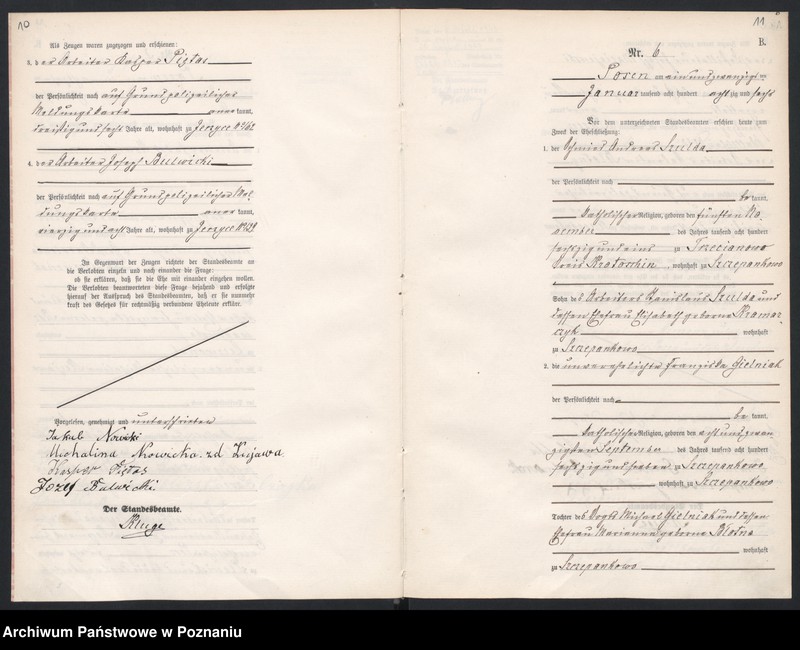 10
Als Zeugen waren zugezogen und erschienen:
3. des Arbeiter Kasper Piętas
der Persönlichkeit nach auf Grund polizeilicher
Meldungskarte anerkannt,
dreißig und sechs Jahre alt, wohnhaft zu Jerzyce
4. des Arbeiter Joseph Bulwicki
der Persönlichkeit nach auf Grund polizeilicher Mel-
dungskarte anerkannt,
vierzig und acht Jahre alt, wohnhaft zu Jerzyce
In Gegenwart der Zeugen richtete der Standesbeamte an
die Verlobten einzeln und nach einander die Frage:
ob sie erklären, daß sie die Ehe mit einander eingehen wollen.
Die Verlobten beantworteten diese Frage bejahend und erfolgte
hierauf der Ausspruch des Standesbeamten, daß er sie nunmehr
kraft des Gesetzes für rechtmäßig verbundene Eheleute erkläre.
Vorgelesen, genehmigt und unterschrieben
Jakub Nowicki
Michalina Nowicka. zd Kujawa
Kasper Piętas
Józef Bulwicki.
Der Standesbeamte.
Kluge
11
B.
Nr. 6
Posen am ein und zwanzigsten
Januar tausend acht hundert achtzig und sechs
Vor dem unterzeichneten Standesbeamten erschien heute zum
Zweck der Eheschließung:
1. der Schmied Andreas Szulda
der Persönlichkeit nach
bekannt,
katholischer Religion, geboren den fünften No-
vember des Jahres tausend acht hundert
sechszig und eins zu Trzecianowo
Kreis Krotoschin, wohnhaft zu Szczepankowo
Sohn des Arbeiters Stanislaus Szulda und
dessen Ehefrau Elisabeth geborne Kramar-
czyk wohnhaft
zu Szczepankowo
2. die unverehelichte Franziska Gielniak
der Persönlichkeit nach
bekannt,
katholischer Religion, geboren den acht und zwan-
zigsten September des Jahres tausend acht hundert
sechszig und sieben zu Szczepankowo
wohnhaft zu Szczepankowo
Tochter des Vogts Michael Gielniak und dessen
Ehefrau Marianna geborne Blotna
wohnhaft
zu Szczepankowo
Archiwum Państwowe w Poznaniu